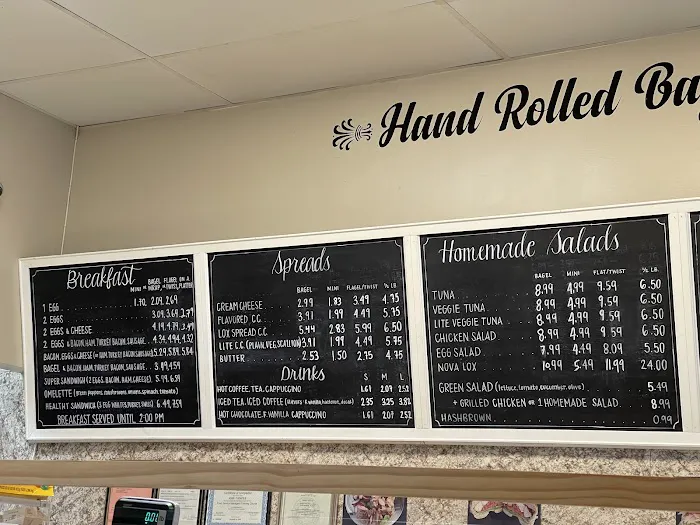 Hand Rolled Ba
Breakfast
MINI BAGEL FLAGEL ON A
1 EGG 1.70 2.09 2.69
2 EGGS 3.09 3.69 3.79
2 EGGS & CHEESE 4.19 4.79
2 EGGS & BACON, HAM, TURKEY BACON, SAUSAGE
BACON, EGGS & CHEESE (OR HAM, TURKEY BACON, SAUSAGE) 5.29 5.89 5.84
BAGEL & BACON, HAM, TURKEY BACON, SAUSAGE
SUPER SANDWICH (2 EGGS, BACON, HAM, CHEESE)
OMELETTE (green peppers, mushrooms, onions, spinach, tomato)
HEALTHY SANDWICH
BREAKFAST SERVED UNTIL 2:00 PM
Spreads
BAGEL MINI FLAGEL/TWIST ¼ LB
CREAM CHEESE 2.99 1.83 3.49 4.75
FLAVORED C.C. 3.91 1.99 4.49 5.75
LOX SPREAD C.C. 5.44 2.83 5.99 6.50
LITE C.C. (PLAIN, VEG, SCALLION) 3.91 1.99 4.49 5.75
BUTTER 2.53 1.50 2.75 4.75
Drinks
S M L
HOT COFFEE, TEA, CAPPUCCINO 1.61 2.07 2.52
ICED TEA, ICED COFFEE 2.35 3.25 3.82
HOT CHOCOLATE, F. VANILLA CAPPUCCINO 1.61 2.07 2.52
Homemade Salads
BAGEL MINI FLAT/TWIST ¼ LB
TUNA 8.99 4.99 9.59 6.50
VEGGIE TUNA 8.99 4.99 9.59 6.50
LITE VEGGIE TUNA 8.99 4.99 9.59 6.50
CHICKEN SALAD 8.99 4.99 9.59 6.50
EGG SALAD 7.99 4.49 8.09 5.50
NOVA LOX 10.99 5.49 11.99 24.00
GREEN SALAD (lettuce, tomato, cucumber, olive) 5.49
+ GRILLED CHICKEN OR 1 HOMEMADE SALAD 8.99
HASHBROWN 0.99